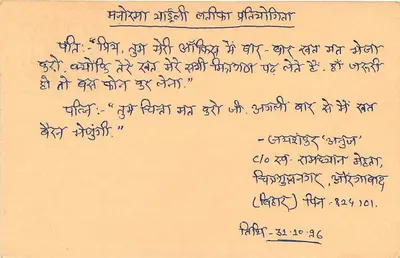 मनोरमा थाईली लतीफा प्रतियोगिता
पति:- "प्रिय, तुम मेरी ऑफिस में बार-बार खत मत भेजा
करो, क्योंकि तेरे खत मेरे सभी मित्रगण पढ़ लेते हैं. हाँ जरूरी
हो तो बस फोन कर लेना."
पत्नि:- "तुम चिन्ता मत करो जी. अगली बार से मैं खत
बैरन भेजुंगी."
- जयशंकर 'अनुज'
C/o स्व- रामध्यान मेहता,
चित्रगुप्तनगर, औरंगाबाद
(बिहार) पिन- 824101.
तिथि - 31.10.96